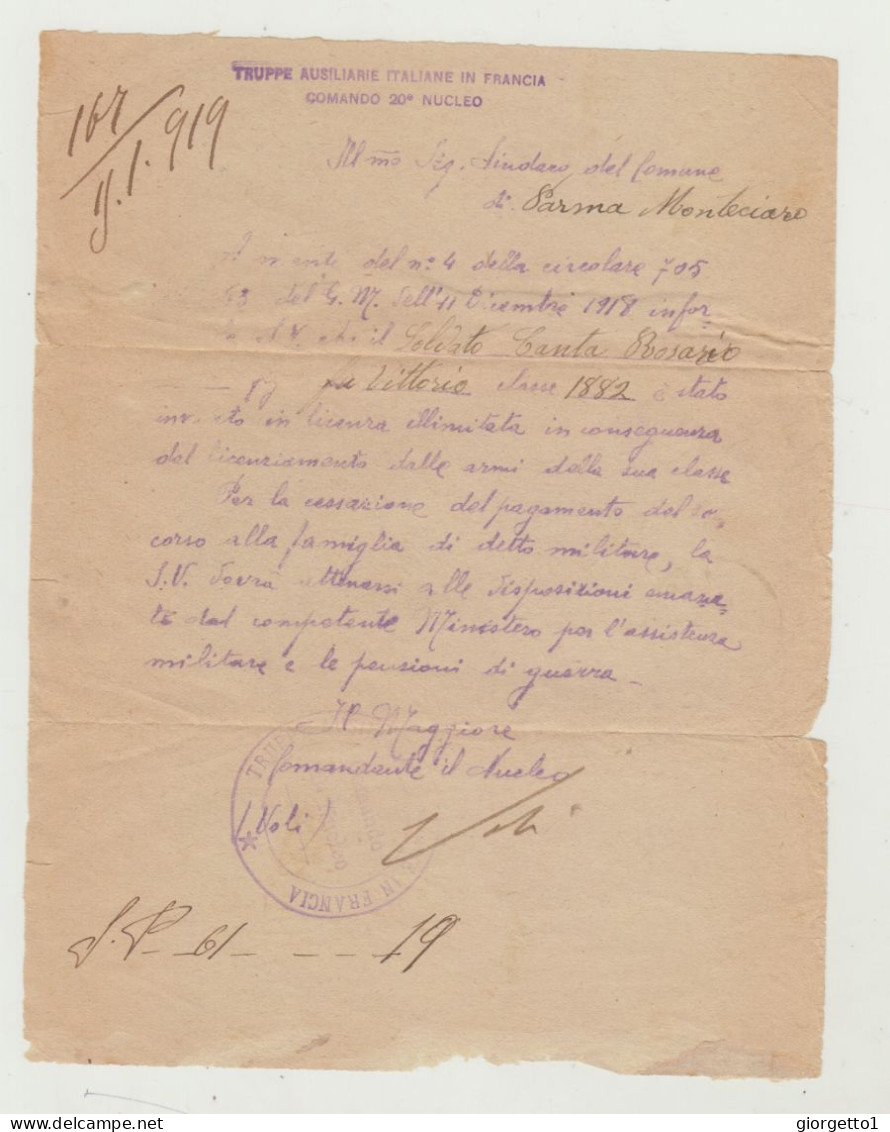 TRUPPE AUSILIARIE ITALIANE IN FRANCIA
COMANDO 20° NUCLEO
167
1. 919
Ill mo Sig. Sindaco del Comune
di Parma Monteciaro
del n° 4 della circolare 705
del G. M. dell'11 Dicembre 1918 infor
S. V. che il Soldato Canta Rosario
fu Vittorio classe 1882 è stato
inviato in licenza illimitata in conseguenza
del licenziamento dalle armi della sua classe
Per la cessazione del pagamento del soc
corso alla famiglia di detto militare, la
S. V. dovrà attenersi alle disposizioni emana=
te dal competente Ministero per l'assistenza
militare e le pensioni di guerra _
Il Maggiore
Comandante il Nucleo
(Voli)
Voli
TRUP
E IN FRANCIA
61 - - - 19
giorgetto1